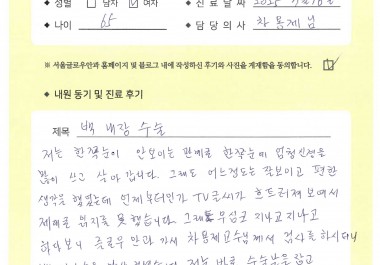 ◆ 성별 □ 남자 ☑ 여자 ◆ 진료 날짜 2025
◆ 나이 65 ◆ 담당의사 차용제 님
※ 서울글로우안과 홈페이지 및 블로그 내에 작성하신 후기와 사진을 게재함을 동의합니다. ☑
◆ 내원 동기 및 진료 후기
제목 백내장 수술
저는 한쪽눈이 안보이는 관계로 한쪽눈에 엄청신경을
많이 쓰고 살아 갑니다. 그래도 어느정도는 잘보이고 편한
생각을 했었는데 언제부터인가 TV글씨가 흐트러져 보여서
제대로 읽지를 못했습니다. 그래도 무심코 지나고 지나고
하다보니 글로우 안과 가서 차용제교수님께서 검사를 하시더니
저는 바로 수술날을 잡고